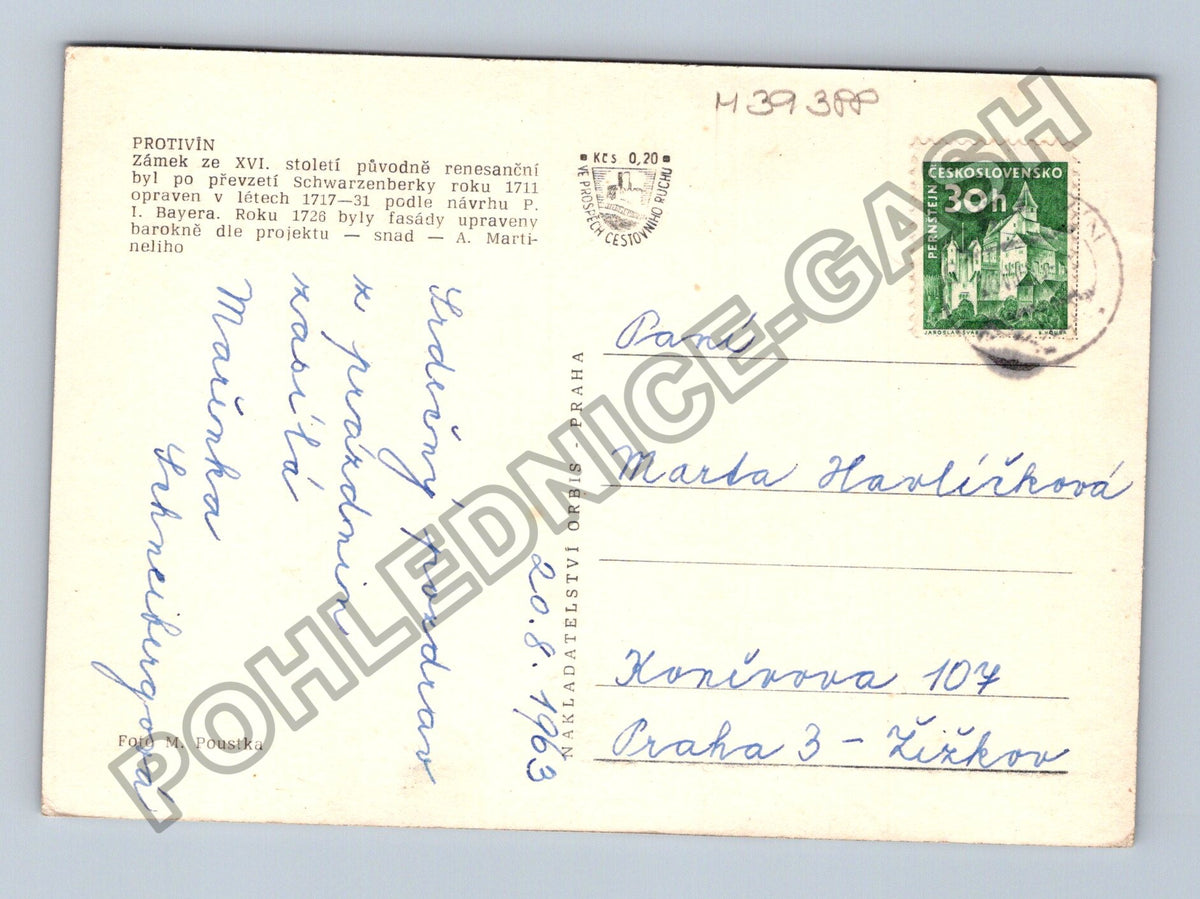 M 39 388
PROTIVÍN
Zámek ze XVI. století původně renesanční
byl po převzetí Schwarzenberky roku 1711
opraven v létech 1717—31 podle návrhu P.
I. Bayera. Roku 1726 byly fasády upraveny
barokně dle projektu — snad — A. Marti-
neliho
Kčs 0,20
VE PROSPĚCH CESTOVNÍHO RUCHU
ČESKOSLOVENSKO
30h
PERNŠTEJN
JAROSLAV ŠVAB
Srdečný pozdrav
z prázdnin
zasílá
Mařenka
Schneibergová
20.8.1963
NAKLADATELSTVÍ ORBIS - PRAHA
Paní
Marta Havlíčková
Koněvova 107
Praha 3 - Žižkov
Foto M. Poustka
POHLEDNICE-GASH